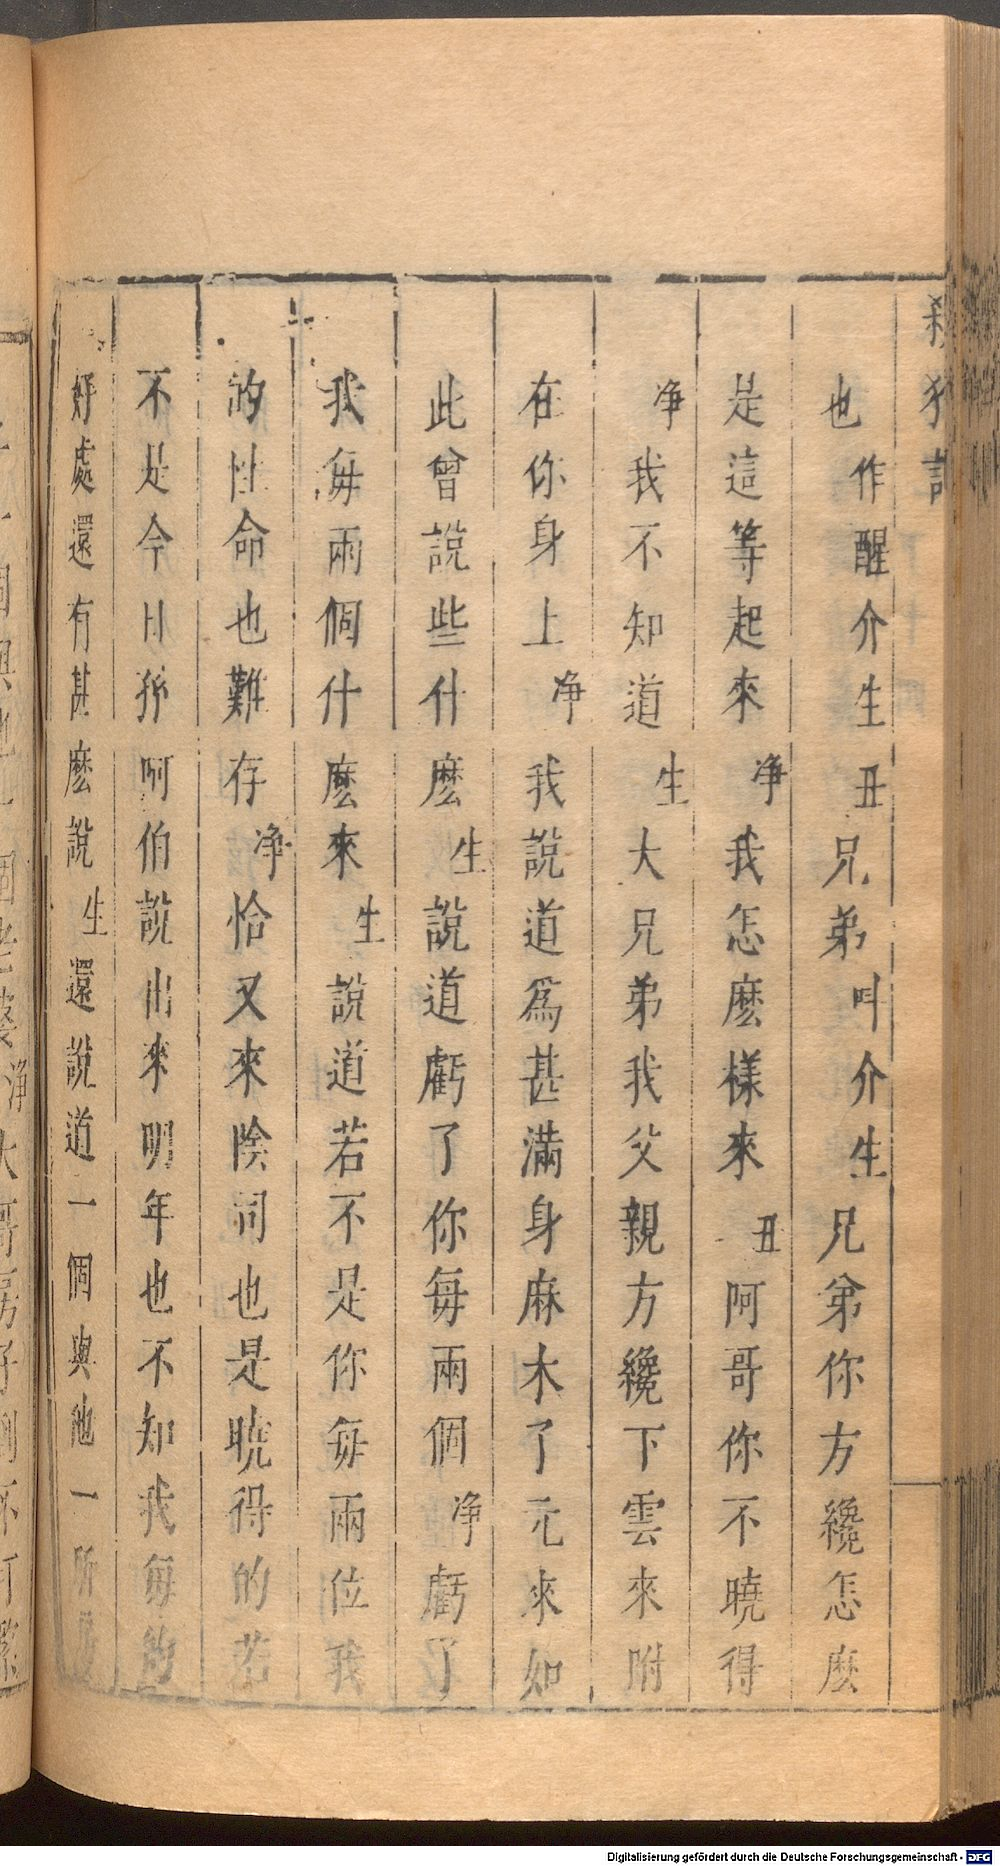 殺狗記
也作醒介生丑兄弟叫介生兄弟你方纔怎麽
是這等起來净我怎麽樣來丑阿哥你不曉得
净我不知道生大兄弟我父親方纔下雲來附
在你身上净我說道爲甚滿身麻木了元來如
此曾說些什麽生說道虧了你每兩個净虧了
我每兩個什麽來生說道若不是你每兩位我
的性命也難存净恰又來陰司也是曉得的若
不是今日孫阿伯說出來明年也不知我每的
好處還有甚麽說生還說道一個與他一所
净大哥房子倒不打緊
Digitalisierung gefördert durch die Deutsche Forschungsgemeinschaft - DFG